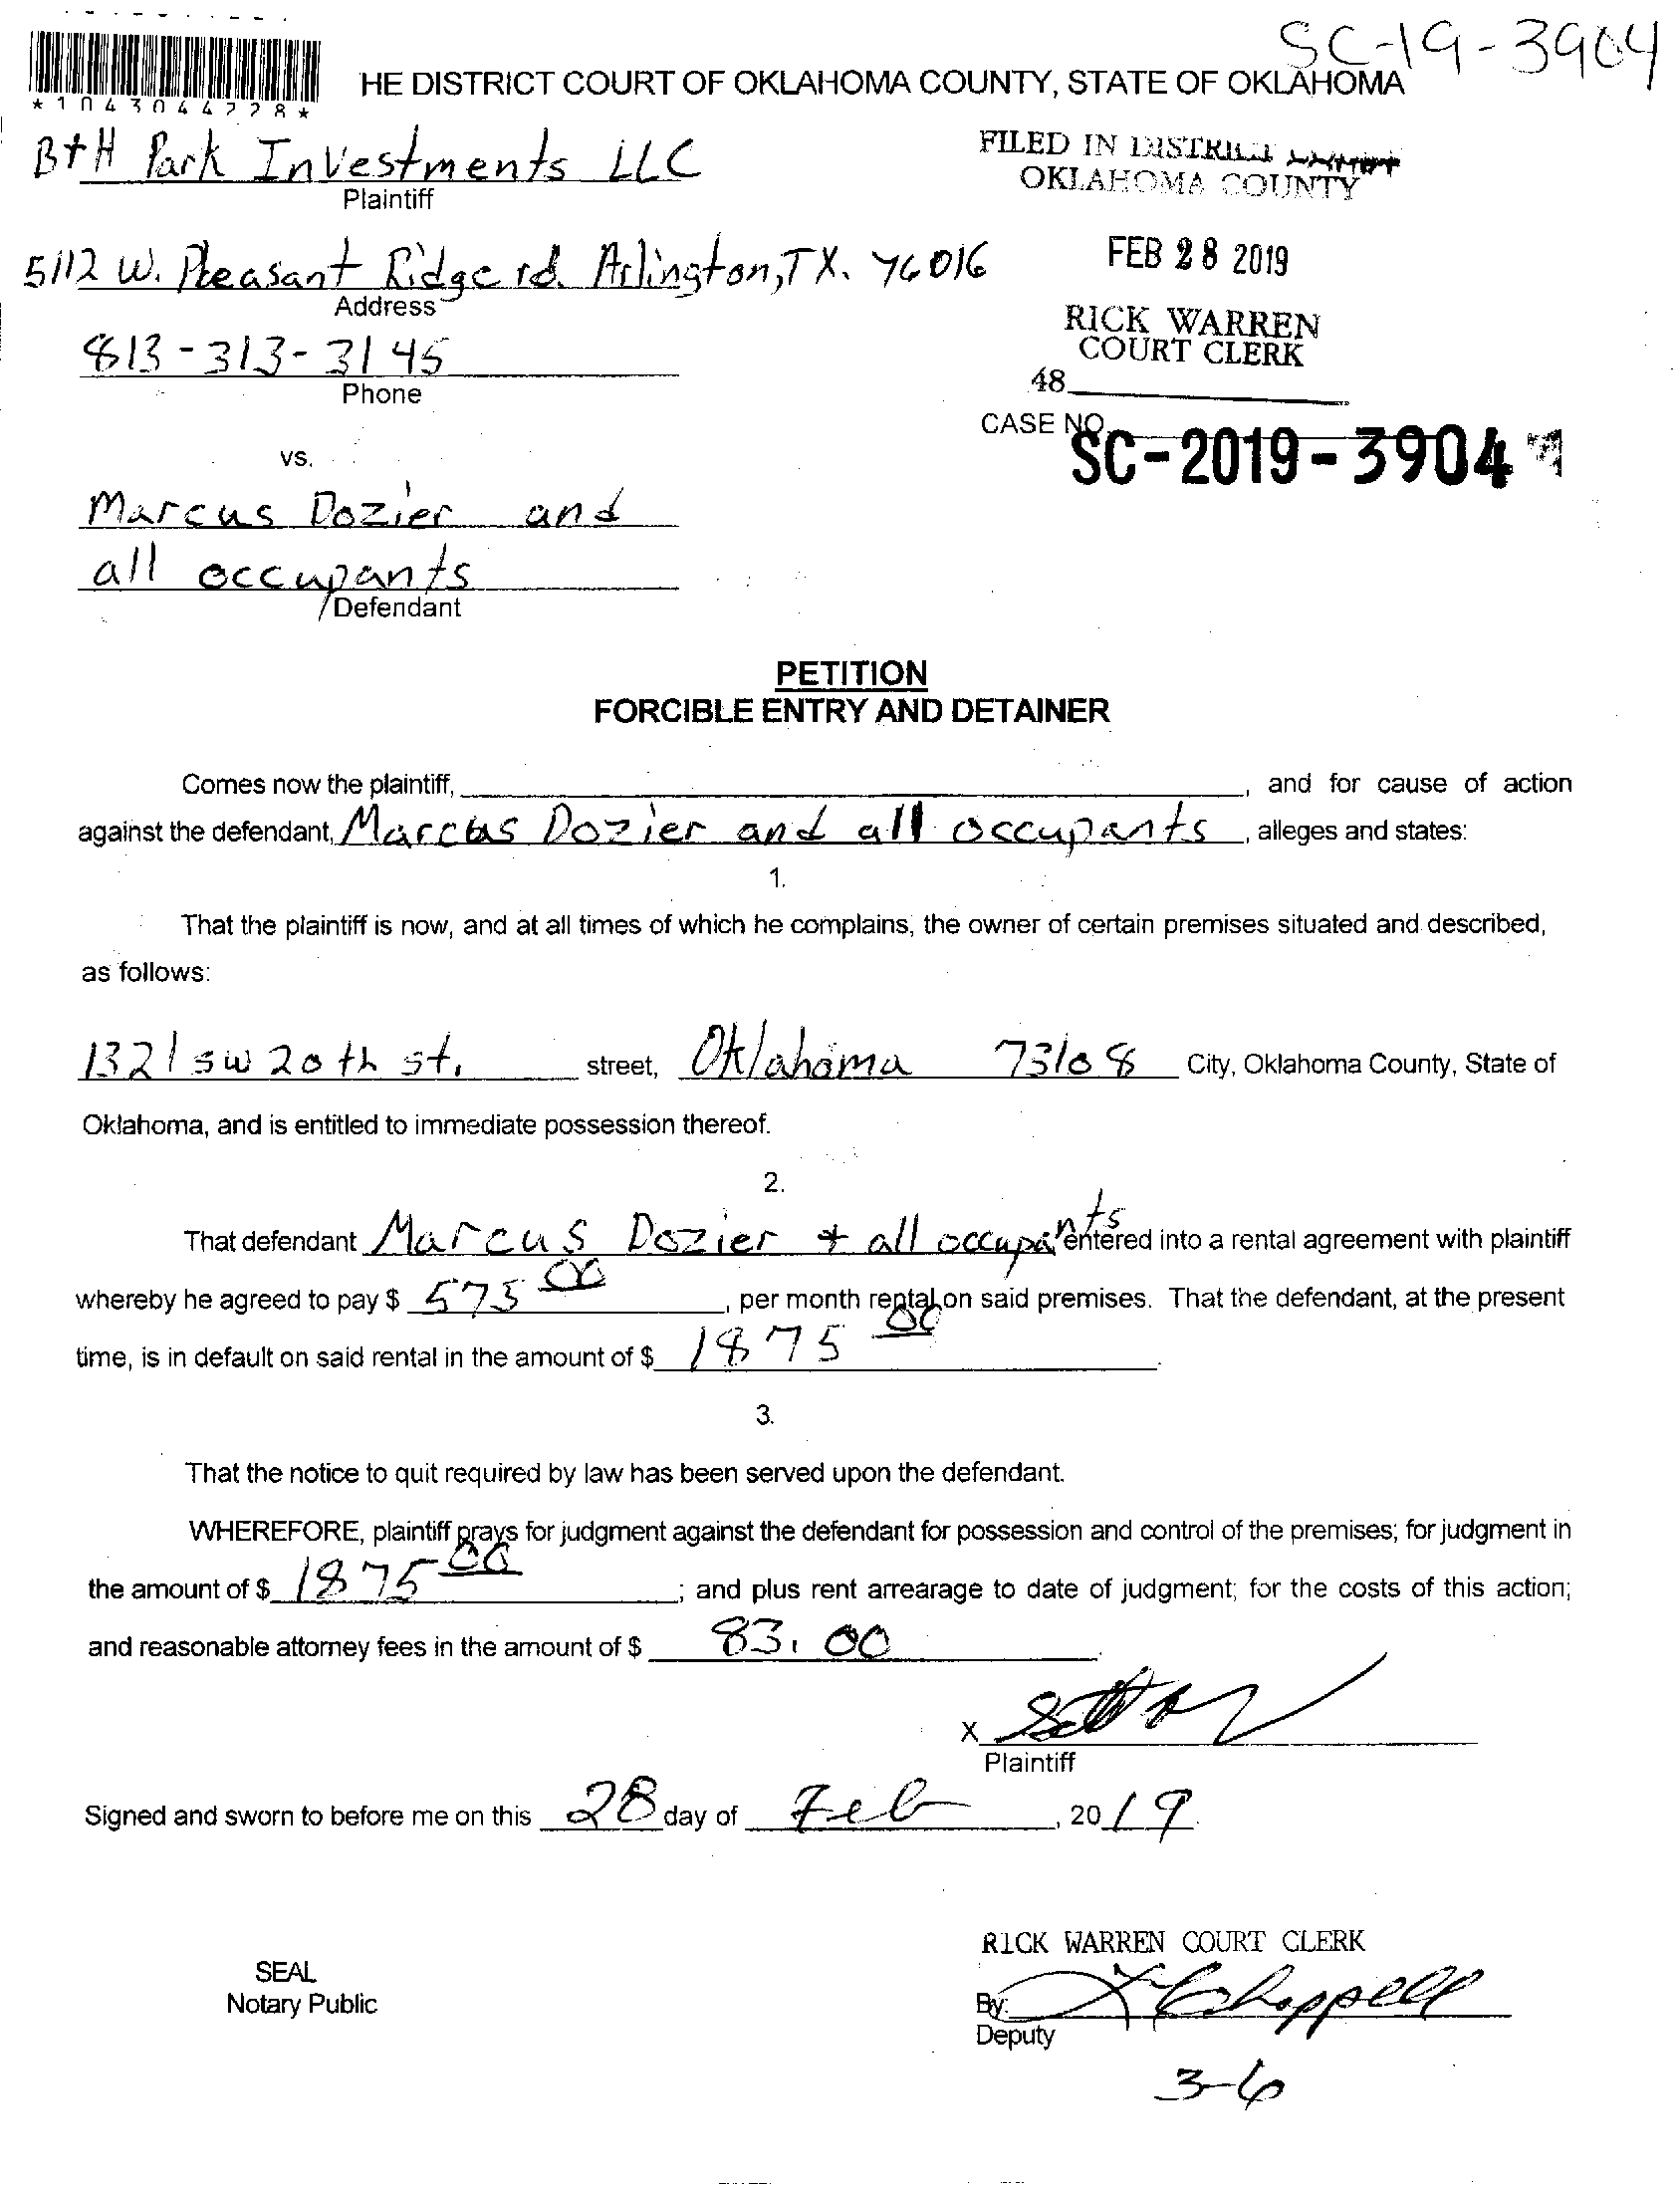 SC-19-3904
*1043044228*
HE DISTRICT COURT OF OKLAHOMA COUNTY, STATE OF OKLAHOMA
B+H Park Investments LLC
Plaintiff
FILED IN DISTRICT
OKLAHOMA COUNTY
5112 W. Pleasant Ridge rd. Arlington, TX. 76016
Address
FEB 28 2019
RICK WARREN
COURT CLERK
813-313-3145
Phone
48
CASE NO.
SC-2019-3904
vs.
Marcus Dozier and
all occupants
Defendant
PETITION
FORCIBLE ENTRY AND DETAINER
Comes now the plaintiff, , and for cause of action
against the defendant, Marcus Dozier and all occupants, alleges and states:
1.
That the plaintiff is now, and at all times of which he complains, the owner of certain premises situated and described,
as follows:
1321 sw 20th st. street, Oklahoma 73108 City, Oklahoma County, State of
Oklahoma, and is entitled to immediate possession thereof.
2.
That defendant Marcus Dozier + all occupants entered into a rental agreement with plaintiff
whereby he agreed to pay $ 575 00, per month rental on said premises. That the defendant, at the present
time, is in default on said rental in the amount of $ 1875 00.
3.
That the notice to quit required by law has been served upon the defendant.
WHEREFORE, plaintiff prays for judgment against the defendant for possession and control of the premises; for judgment in
the amount of $ 1875 00; and plus rent arrearage to date of judgment; for the costs of this action;
and reasonable attorney fees in the amount of $ 83.00.
X
Plaintiff
Signed and sworn to before me on this 28 day of Feb, 2019.
RICK WARREN COURT CLERK
SEAL
Notary Public
By: Chappell
Deputy
3-6